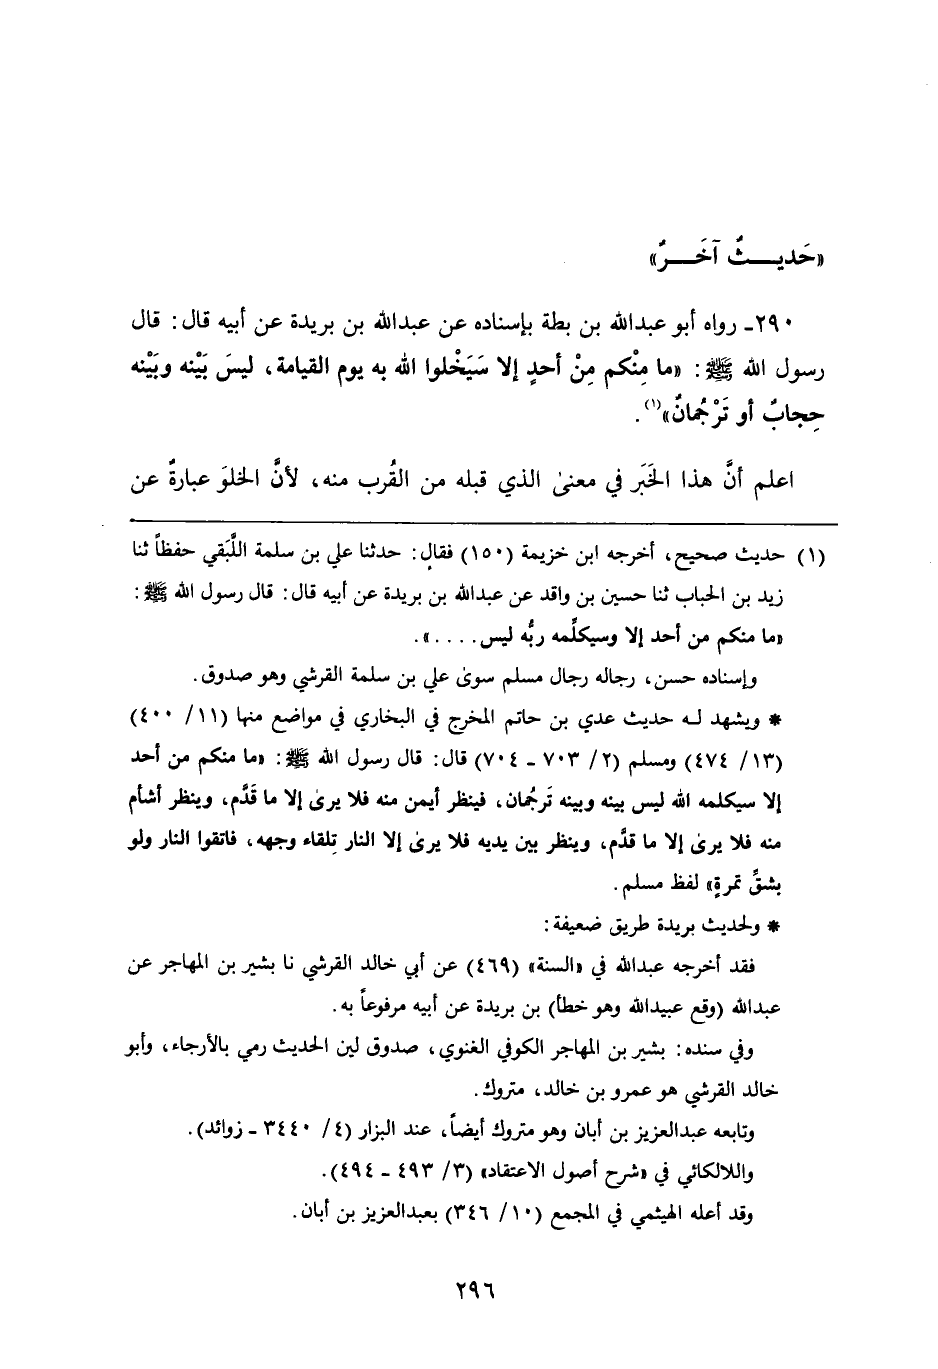 «حَديـــثٌ آخَـــرٌ»
٢٩٠ـ رواه أبو عبدالله بن بطة بإسناده عن عبدالله بن بريدة عن أبيه قال: قال
رسول الله ﷺ: «ما مِنْكم مِنْ أحدٍ إلا سَيَخْلوا الله به يوم القيامة، ليسَ بَيْنه وبَيْنه
حِجابٌ أو تَرْجُمانٌ»(١).
اعلم أنَّ هذا الخَبَر في معنىٰ الذي قبله من القُرب منه، لأنَّ الخلوَ عبارةٌ عن
(١) حديث صحيح، أخرجه ابن خزيمة (١٥٠) فقال: حدثنا علي بن سلمة اللَّبَقي حفظاً ثنا
زيد بن الحباب ثنا حسين بن واقد عن عبدالله بن بريدة عن أبيه قال: قال رسول الله ﷺ:
«ما منكم من أحد إلا وسيكلِّمه ربُّه ليس....».
وإسناده حسن، رجاله رجال مسلم سوىٰ علي بن سلمة القرشي وهو صدوق.
* ويشهد لـه حديث عدي بن حاتم المخرج في البخاري في مواضع منها (١١/ ٤٠٠)
(١٣/ ٤٧٤) ومسلم (٢/ ٧٠٣ ـ ٧٠٤) قال: قال رسول الله ﷺ: «ما منكم من أحد
إلا سيكلمه الله ليس بينه وبينه تَرجُمان، فينظر أيمن منه فلا يرىٰ إلا ما قَدَّم، وينظر أشأم
منه فلا يرىٰ إلا ما قدَّم، وينظر بين يديه فلا يرىٰ إلا النار تِلقاء وجهه، فاتقوا النار ولو
بشقِّ تمرةٍ» لفظ مسلم.
* ولحديث بريدة طريق ضعيفة:
فقد أخرجه عبدالله في «السنة» (٤٦٩) عن أبي خالد القرشي نا بشير بن المهاجر عن
عبدالله (وقع عبيدالله وهو خطأ) بن بريدة عن أبيه مرفوعاً به.
وفي سنده: بشير بن المهاجر الكوفي الغنوي، صدوق لين الحديث رمي بالأرجاء، وأبو
خالد القرشي هو عمرو بن خالد، متروك.
وتابعه عبدالعزيز بن أبان وهو متروك أيضاً، عند البزار (٤/ ٣٤٤٠ ـ زوائد).
واللالكائي في «شرح أصول الاعتقاد» (٣/ ٤٩٣ ـ ٤٩٤).
وقد أعله الهيثمي في المجمع (١٠/ ٣٤٦) بعبدالعزيز بن أبان.
٢٩٦